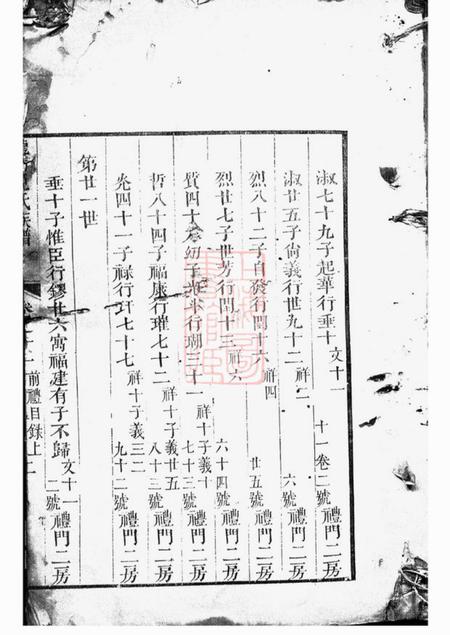 淑七十九子起華行垂十 文十一 十一卷二號 禮門二房
淑廿五子尙義行世九十二 祥二 六號 禮門二房
烈八十二子自發行閏十六 祥四 廿五號 禮門二房
烈廿七子世芳行閏十三 祥六 六十四號 禮門二房
質四十 幼子 行瑚三十一 祥十子義十 七十三號 禮門二房
哲八十四子福康行瑾七十二 祥十子義廿五 八十三號 禮門二房
光四十一子祿行玕七十七 祥十子義三二 九十二號 禮門二房
第廿一世
垂十子惟臣行鏐廿六寓福建有子不歸 文十一 二號 禮門二房
氏族譜 卷 前禮目錄上